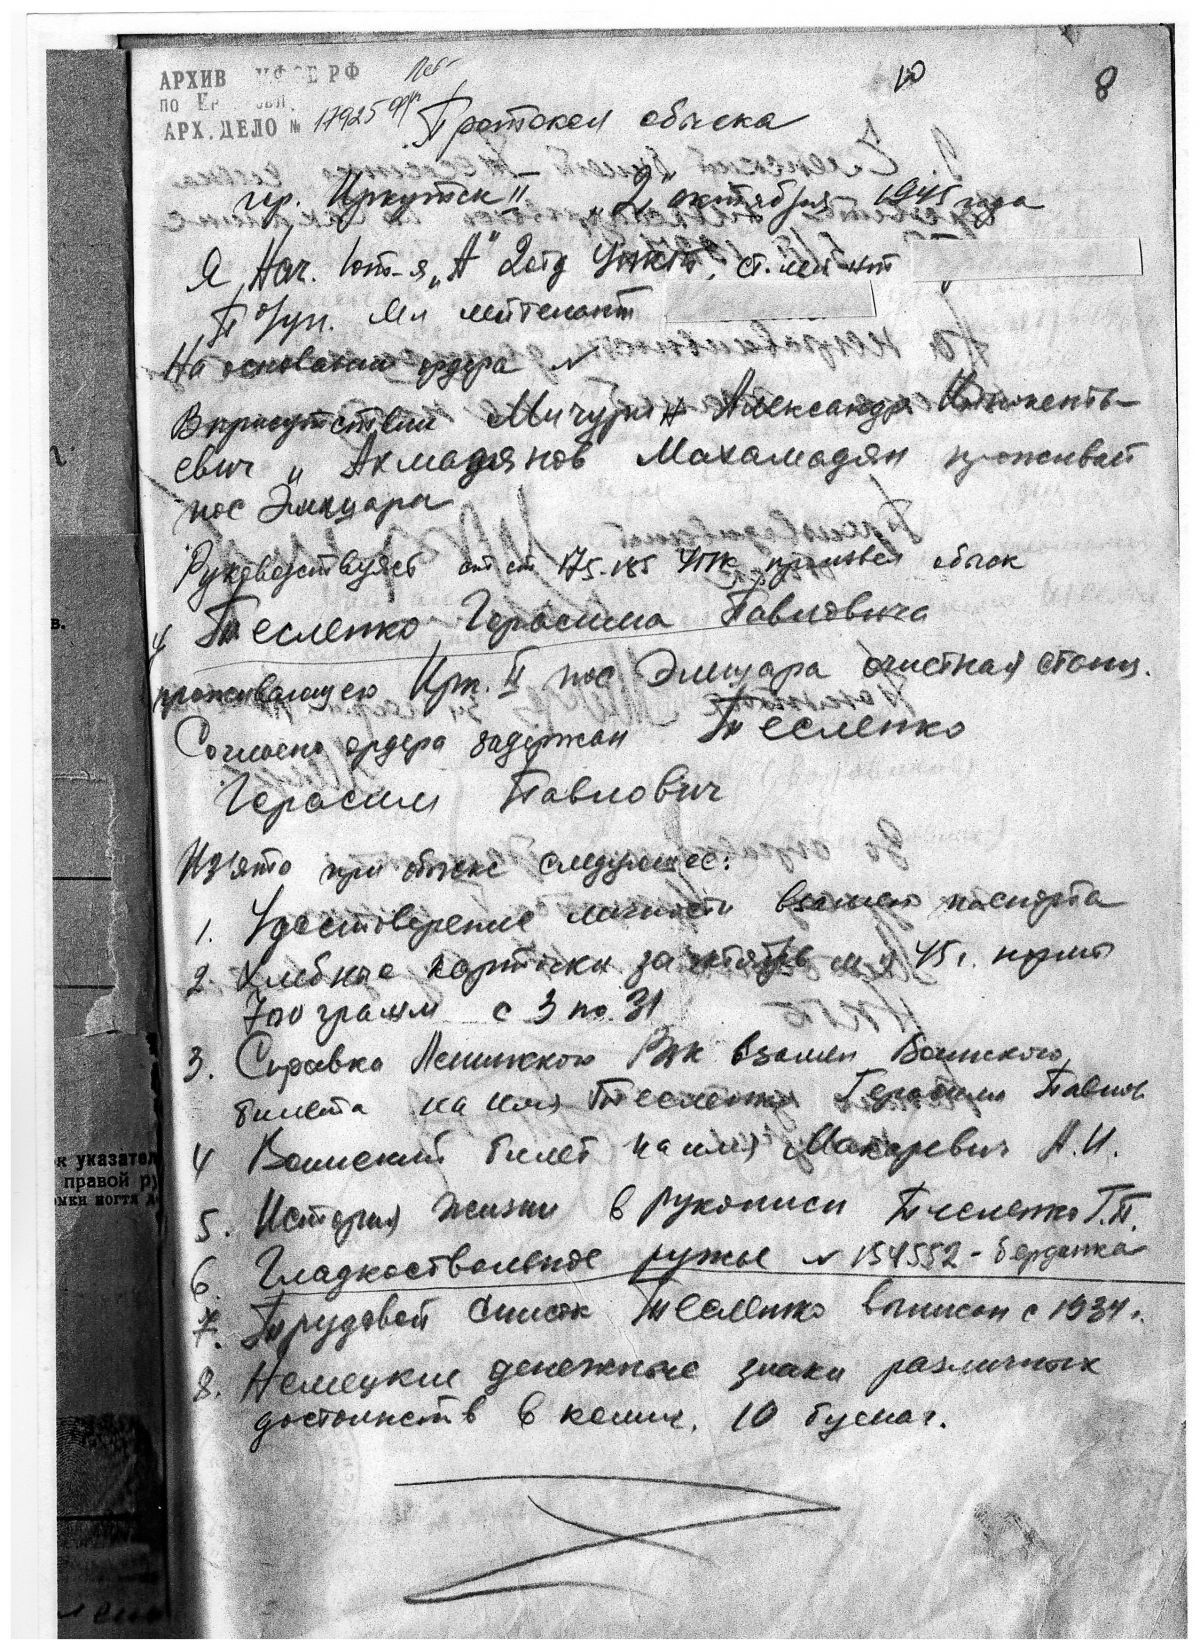 АРХИВ УФСБ РФ
по
АРХ. ДЕЛО № 17925
10
8
Протокол обыска
гор. Иркутск "2" октября 1945 года
Я Нач. 1 отд-я "А" 2 отд ст. лейт
Оперуп. Мл лейтенант
На основании ордера №
В присутствии Мичурин Александр Иннокенть-
евич, Ахмадянов Махамадян проживает
пос Элеватора
Руководствуясь ст ст 175-185 УПК произвел обыск
у Тесленко Герасима Павловича
проживающего Ирк. II пос Элеватора очистная станц.
Согласно ордера задержан Тесленко
Герасим Павлович
Изъято при обыске следующее:
1. Удостоверение личности взамен паспорта
2. Хлебные карточки за октябрь м-ц 45 г. норма
700 грамм с 3 по 31
3. Справка Ленинского Рвк взамен Воинского
билета на имя Тесленко Герасим Павлов.
4 Воинский билет на имя Макаревич А.И.
5. История жизни в рукописи Тесленко Г.П.
6. Гладкоствольное ружье № 154552 - берданка
7. Трудовой список Тесленко выписан с 1934 г.
8. Немецкие денежные знаки различных
достоинств в колич. 10 бумаг.
в.
к указател
правой ру
омки ногтя д